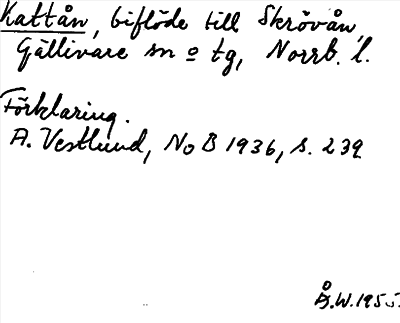 Kattån, biflöde till Skrövån,
Gällivare sn o tg, Norrb. l.
Förklaring.
A. Vestlund, NoB 1936, s. 239
Å.W. 1955.